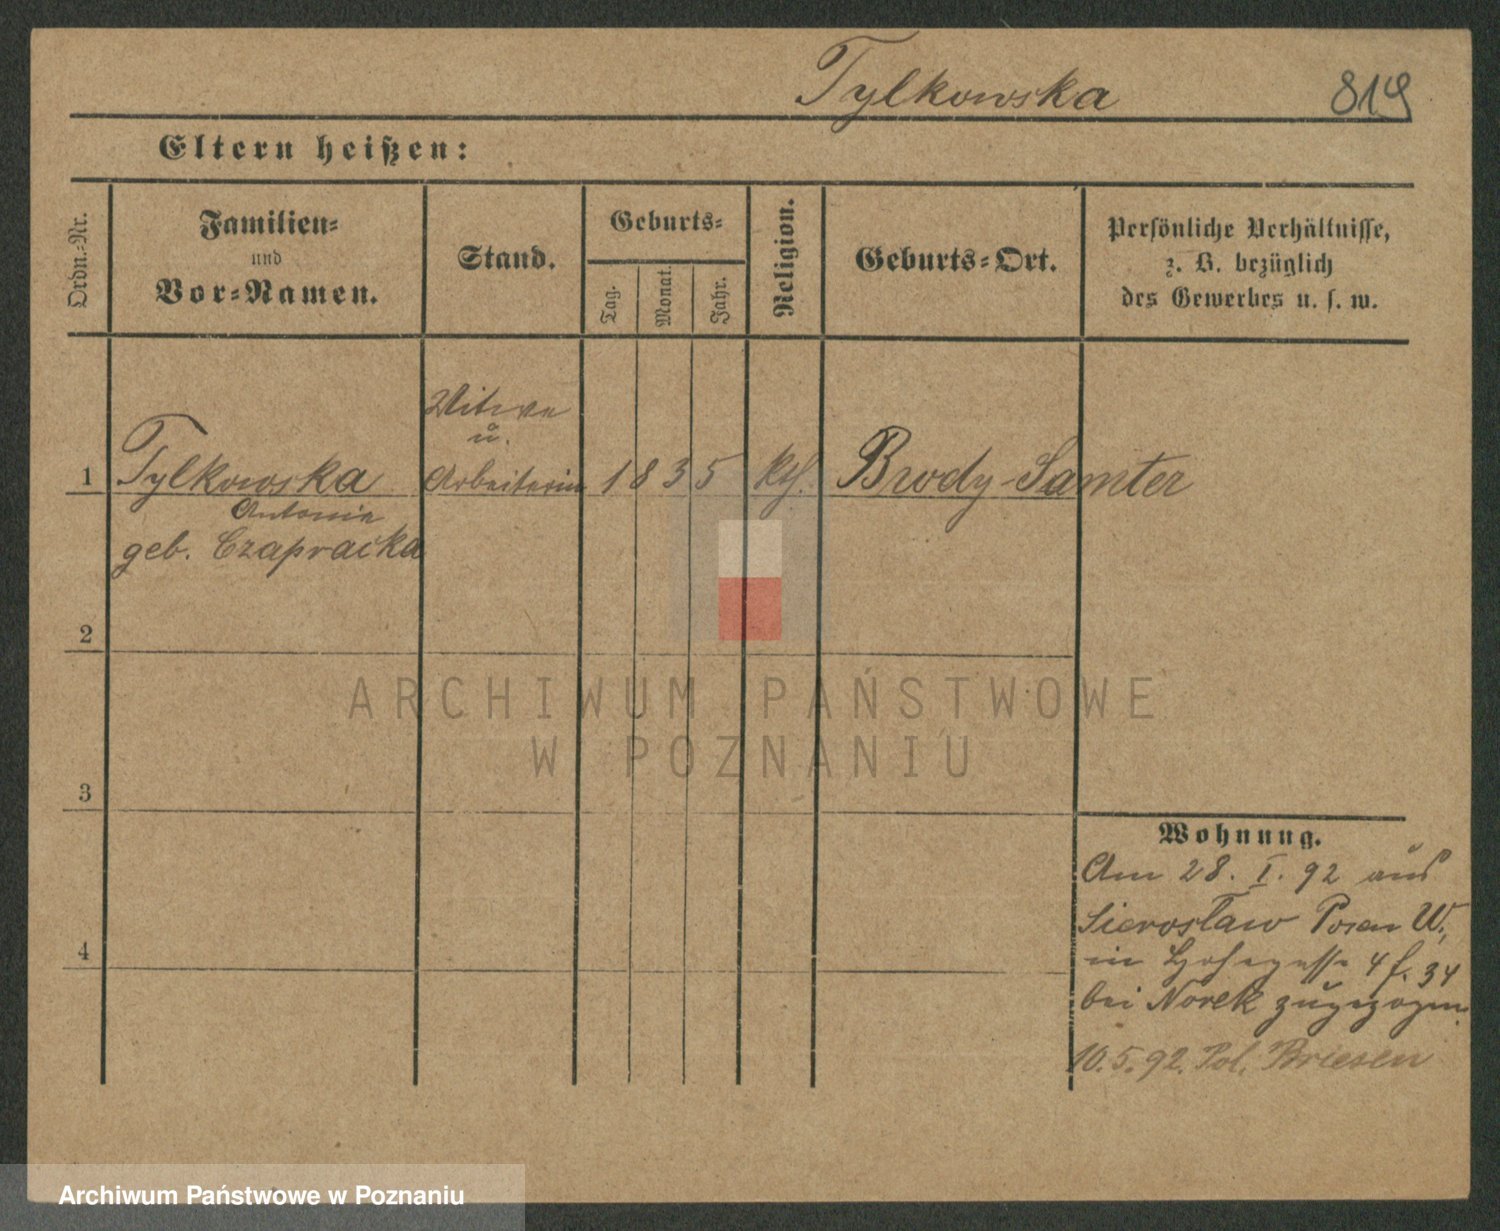 Tylkowska 819
Eltern heißen:
Ordn.-Nr.
Familien-
und
Vor-Namen.
Stand.
Geburts-
Tag.
Monat.
Jahr.
Religion.
Geburts-Ort.
Persönliche Verhältnisse,
z. B. bezüglich
des Gewerbes u. s. w.
Witwe
u.
1 Tylkowska Arbeiterin 1835 kth. Brody-Samter
Antonie
geb. Czapracka
2
3
4
Wohnung.
Am 28. I. 92 aus
Sierosław Posen W,
in 4 f. 34
bei Norek zugezogen.
10.5.92. Pol. Briesen
ARCHIWUM PAŃSTWOWE
W POZNANIU
Archiwum Państwowe w Poznaniu